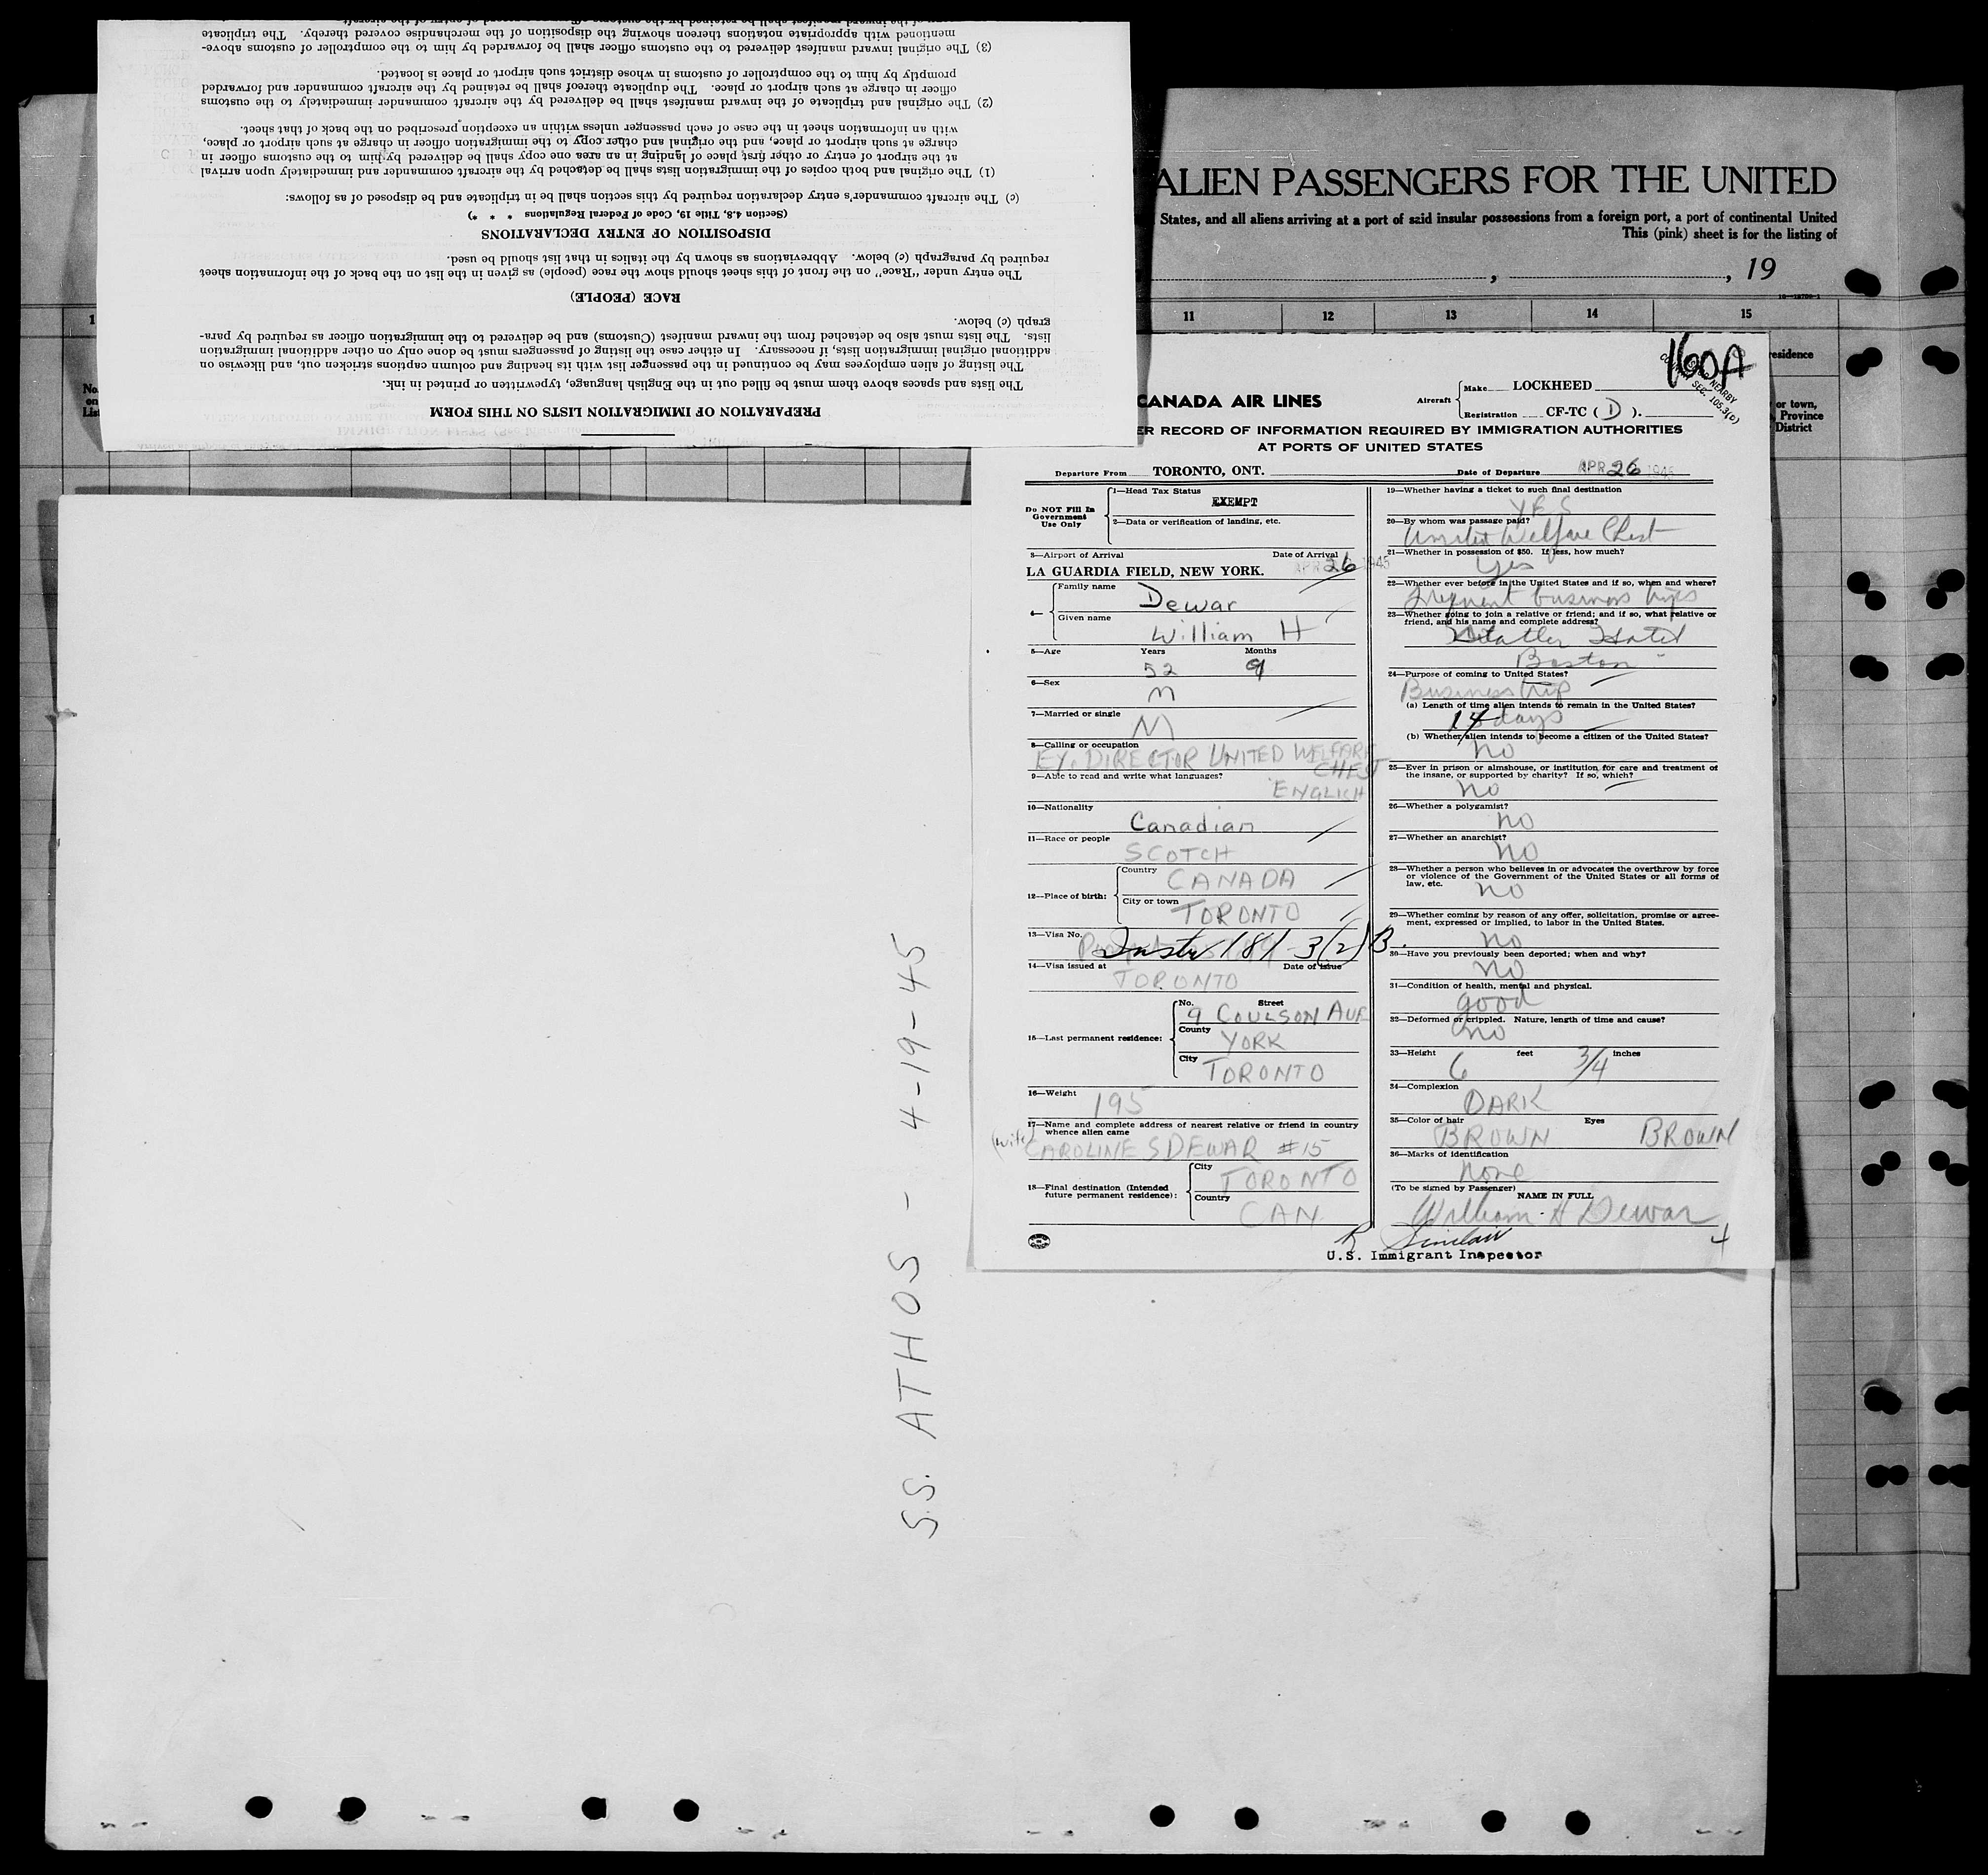 mentioned with appropriate notations thereon showing the disposition of the merchandise covered thereby. The triplicate
(3) The original inward manifest delivered to the customs officer shall be forwarded by him to the comptroller of customs above-
promptly by him to the comptroller of customs in whose district such airport or place is located.
officer in charge at such airport or place. The duplicate thereof shall be retained by the aircraft commander and forwarded
(2) The original and triplicate of the inward manifest shall be delivered by the aircraft commander immediately to the customs
with an information sheet in the case of each passenger unless within an exception prescribed on the back of that sheet.
charge at such airport or place, and the original and other copy to the immigration officer in charge at such airport or place,
at the airport of entry or other first place of landing in an area one copy shall be delivered by him to the customs officer in
(1) The original and both copies of the immigration lists shall be detached by the aircraft commander and immediately upon arrival
(c) The aircraft commander's entry declaration required by this section shall be in triplicate and be disposed of as follows:
(Section 4.8, Title 19, Code of Federal Regulations * * *)
DISPOSITION OF ENTRY DECLARATIONS
required by paragraph (c) below. Abbreviations as shown by the italics in that list should be used.
The entry under "Race" on the front of this sheet should show the race (people) as given in the list on the back of the information sheet
RACE (PEOPLE)
graph (c) below.
lists. The lists must also be detached from the inward manifest (Customs) and be delivered to the immigration officer as required by para-
additional original immigration lists, if necessary. In either case the listing of passengers must be done only on other additional immigration
The listing of alien employees may be continued in the passenger list with its heading and column captions stricken out, and likewise on
The lists and spaces above them must be filled out in the English language, typewritten or printed in ink.
PREPARATION OF IMMIGRATION LISTS ON THIS FORM
ALIEN PASSENGERS FOR THE UNITED
States, and all aliens arriving at a port of said insular possessions from a foreign port, a port of continental United
This (pink) sheet is for the listing of
, , 19
11 12 13 14 15
residence
or town,
Province
District
160A
CANADA AIR LINES
Aircraft
Make LOCKHEED
Registration CF-TC ( D ).
ER RECORD OF INFORMATION REQUIRED BY IMMIGRATION AUTHORITIES
AT PORTS OF UNITED STATES
Departure From TORONTO, ONT. Date of Departure APR 26 1945
Do NOT Fill In
Government
Use Only
1—Head Tax Status
EXEMPT
2—Data or verification of landing, etc.
3—Airport of Arrival Date of Arrival
LA GUARDIA FIELD, NEW YORK. APR 26 1945
4—
Family name
Dewar
Given name
William H
5—Age Years Months
52 9
6—Sex
M
7—Married or single
M
8—Calling or occupation
EX. DIRECTOR UNITED WELFARE
CHEST
9—Able to read and write what languages?
ENGLISH
10—Nationality
Canadian
11—Race or people
SCOTCH
12—Place of birth:
Country
CANADA
City or town
TORONTO
13—Visa No.
Instr 181-3(2) B.
14—Visa issued at Date of issue
TORONTO
15—Last permanent residence:
No. Street
9 COULSON AVE
County
YORK
City
TORONTO
16—Weight
195
17—Name and complete address of nearest relative or friend in country
whence alien came
(wife) CAROLINE S DEWAR #15
18—Final destination (Intended
future permanent residence):
City
TORONTO
Country
CAN.
19—Whether having a ticket to such final destination
YES
20—By whom was passage paid?
United Welfare Chest
21—Whether in possession of $50. If less, how much?
Yes
22—Whether ever before in the United States and if so, when and where?
frequent business trips
23—Whether going to join a relative or friend; and if so, what relative or
friend, and his name and complete address?
Statler Hotel
Boston
24—Purpose of coming to United States?
Business trip
(a) Length of time alien intends to remain in the United States?
14 days
(b) Whether alien intends to become a citizen of the United States?
no
25—Ever in prison or almshouse, or institution for care and treatment of
the insane, or supported by charity? If so, which?
no
26—Whether a polygamist?
no
27—Whether an anarchist?
no
28—Whether a person who believes in or advocates the overthrow by force
or violence of the Government of the United States or all forms of
law, etc.
no
29—Whether coming by reason of any offer, solicitation, promise or agree-
ment, expressed or implied, to labor in the United States.
no
30—Have you previously been deported; when and why?
no
31—Condition of health, mental and physical.
good
32—Deformed or crippled. Nature, length of time and cause?
no
33—Height feet inches
6 3/4
34—Complexion
DARK
35—Color of hair Eyes
BROWN BROWN
36—Marks of identification
none
(To be signed by Passenger)
NAME IN FULL
William H Dewar
R Sinclair
U.S. Immigrant Inspector
4
S.S. ATHOS - 4-19-45